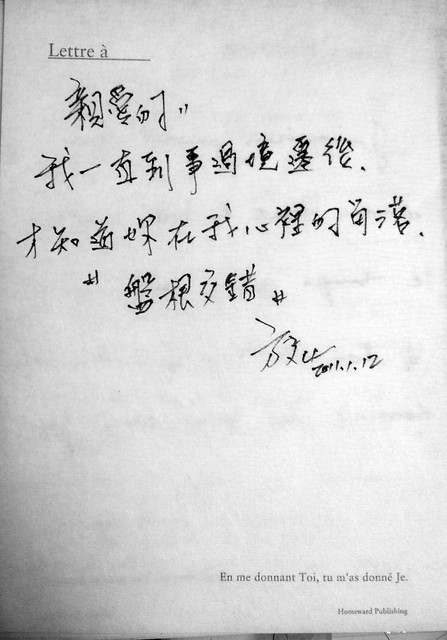 Lettre à
親愛的"
我一直到事過境遷後、
才知道妳在我心裡的角落、
"盤根交錯"
2011.1.12
En me donnant Toi, tu m'as donné Je.
Homeward Publishing